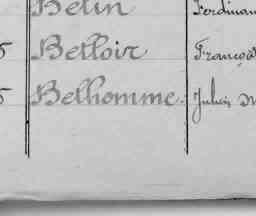 Belin Ferdinan
5 Belloir Françoi
5 Belhomme Julien